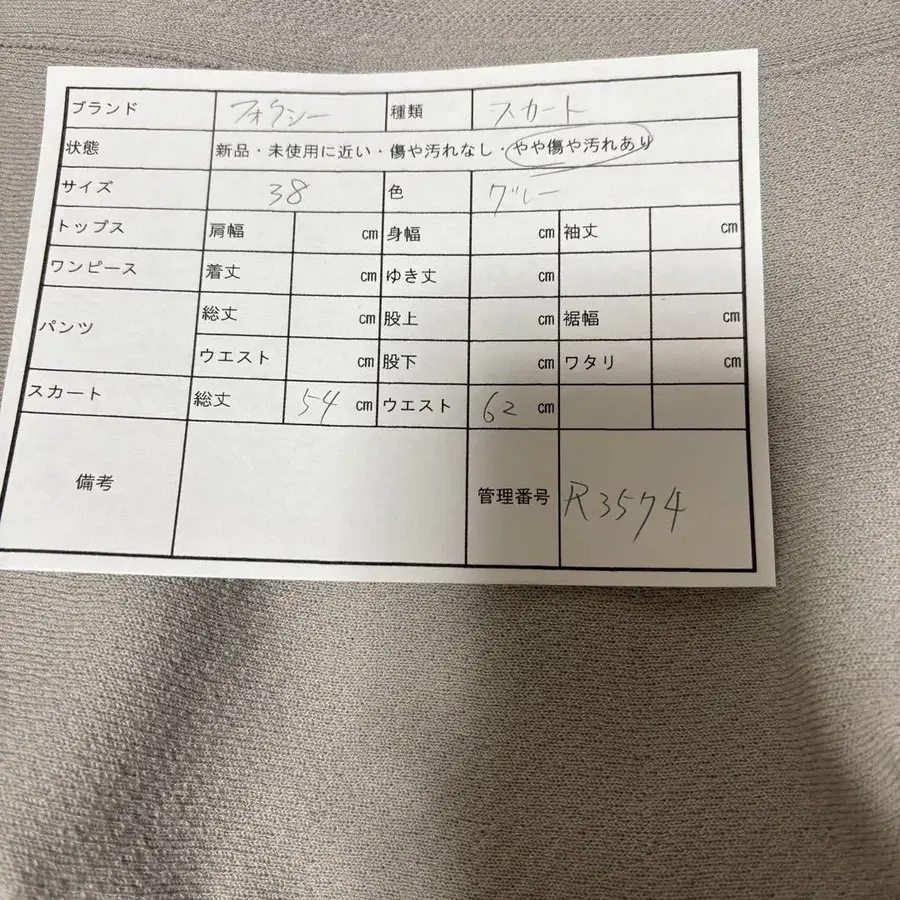 ブランド フォクシー 種類 スカート
状態 新品・未使用に近い・傷や汚れなし・やや傷や汚れあり
サイズ 38 色 グレー
トップス 肩幅 cm 身幅 cm 袖丈 cm
ワンピース 着丈 cm ゆき丈 cm
パンツ 総丈 cm 股上 cm 裾幅 cm
ウエスト cm 股下 cm ワタリ cm
スカート 総丈 54 cm ウエスト 62 cm
備考 管理番号 R3574